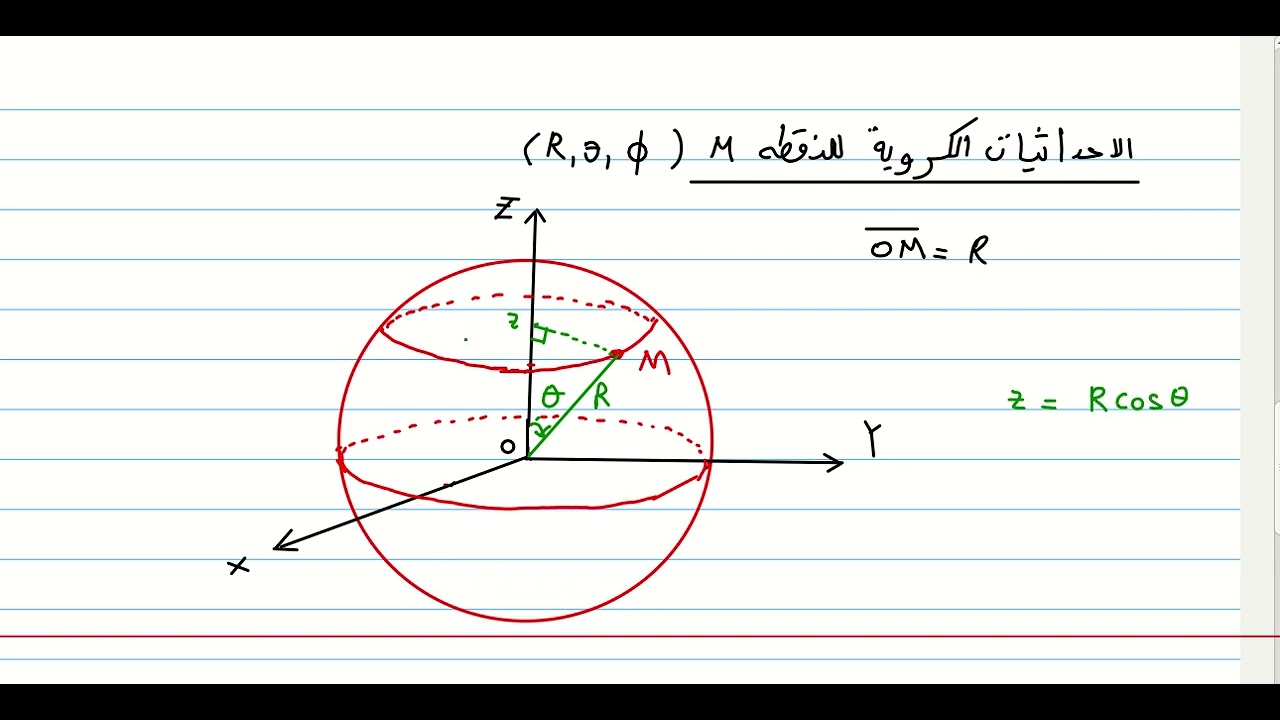 الاحداثيات الكروية للنقطه M (R, θ, φ)
OM = R
Z
z
M
θ R
z = R cos θ
O
Y
x